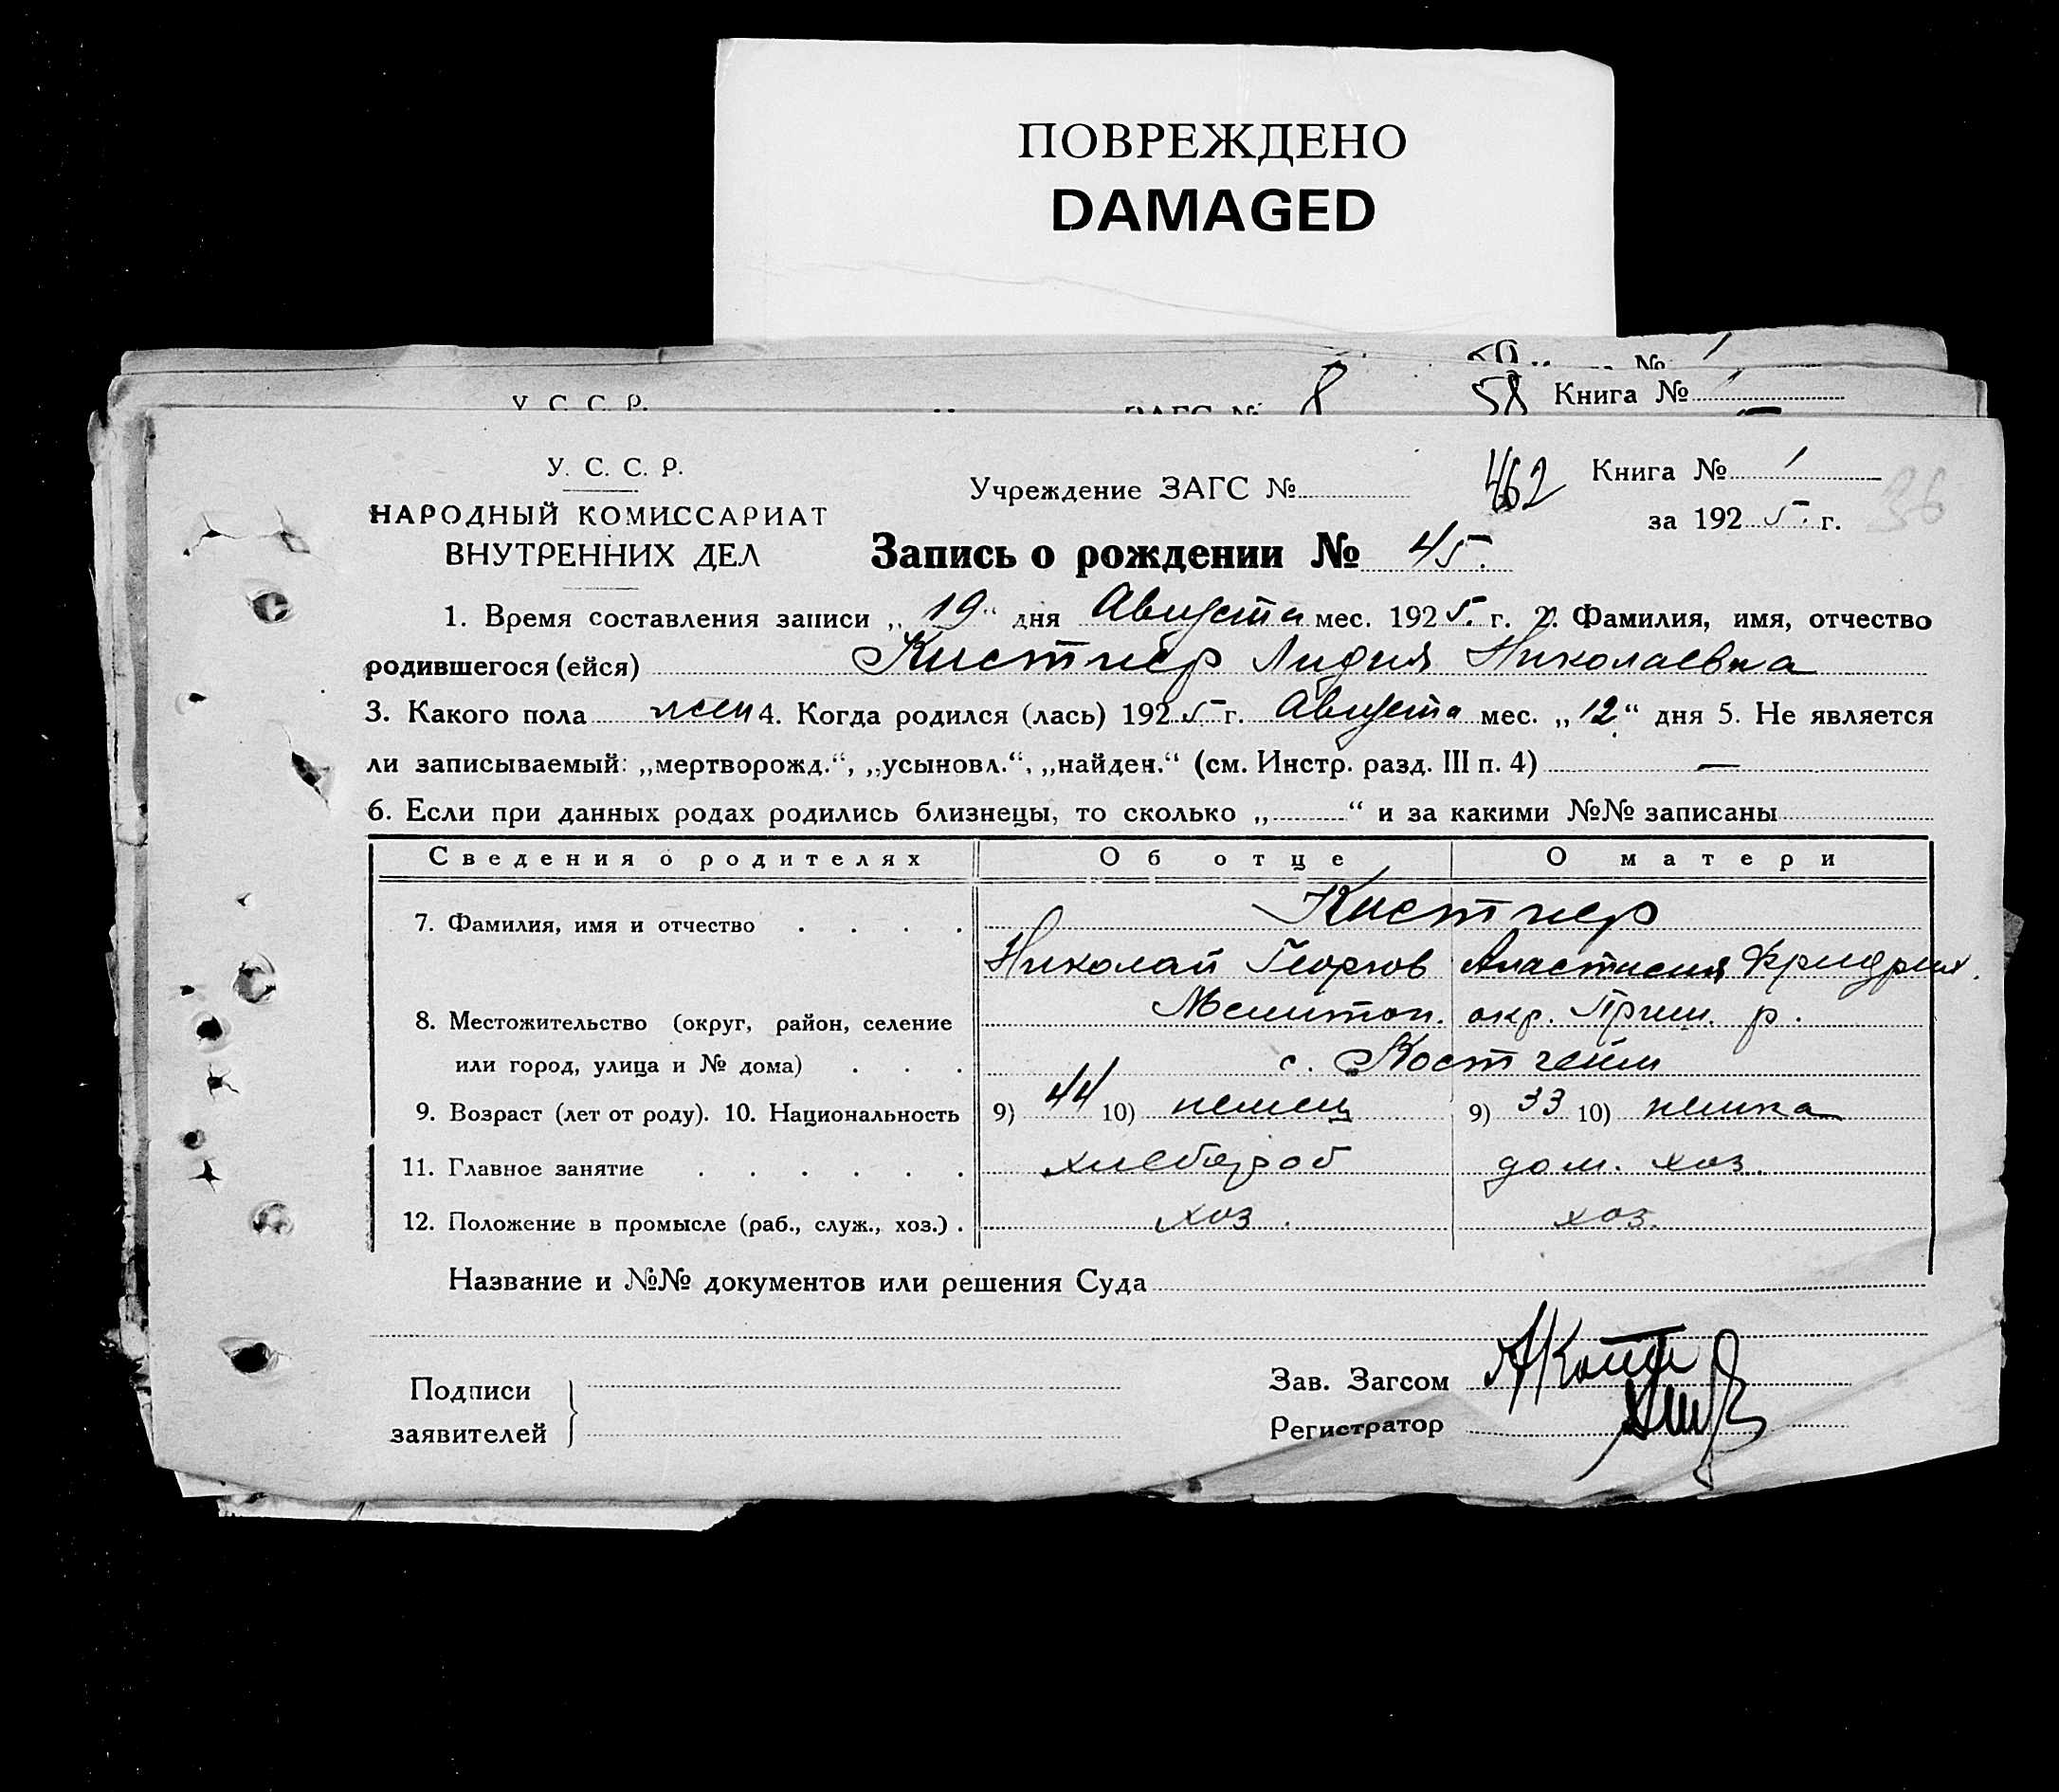 ПОВРЕЖДЕНО
DAMAGED
№ 1
У. С. С. Р. ЗАГС № 8 58 Книга № 1
У. С. С. Р.
Учреждение ЗАГС № 462 Книга № 1
НАРОДНЫЙ КОМИССАРИАТ за 1925 г. 36
ВНУТРЕННИХ ДЕЛ Запись о рождении № 45.
1. Время составления записи „19" дня Августа мес. 1925 г. 2. Фамилия, имя, отчество
родившегося (ейся) Кистнер Лидия Николаевна
3. Какого пола жен 4. Когда родился (лась) 1925 г. Августа мес. „12" дня 5. Не является
ли записываемый: „мертворожд.", „усыновл.", „найден." (см. Инстр. разд. III п. 4) —
6. Если при данных родах родились близнецы, то сколько „ " и за какими №№ записаны
Сведения о родителях Об отце О матери
7. Фамилия, имя и отчество . . . . Кистнер
Николай Георгов Анастасия Фридрих.
8. Местожительство (округ, район, селение Мелитоп. окр. Приш. р.
или город, улица и № дома) . . . с. Костгейм
9. Возраст (лет от роду). 10. Национальность 9) 44 10) немец 9) 33 10) немка
11. Главное занятие . . . . . . хлебороб дом. хоз.
12. Положение в промысле (раб., служ., хоз.) . хоз. хоз.
Название и №№ документов или решения Суда
Подписи Зав. Загсом
заявителей Регистратор